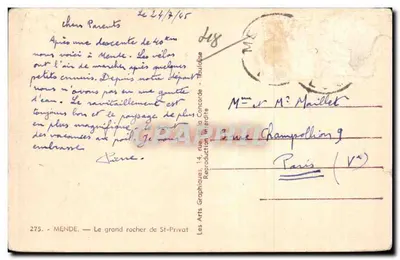 Le 24/7/45
Chers Parents
Après une descente de 40 km
nous voici à Mende. Les vélos
ont l'air de marcher après quelques
petits ennuis. Depuis notre départ
nous n'avons pas eu une goutte
d'eau. Le ravitaillement est
toujours bon et le paysage de plus
en plus magnifique.
des vacances au poil. Je vous
embrasse
Pierre
418
Mme et Mr Maillet
rue Champollion 9
Paris (Ve)
Les Arts Graphiques, 14, rue de la Concorde - Toulouse
Reproduction interdite
275. - MENDE. — Le grand rocher de St-Privat